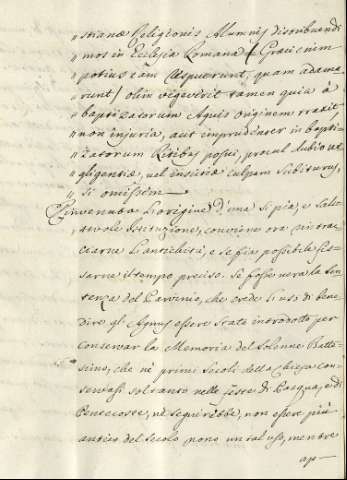 " stianæ Religionis Alumnis distribuendi
" mos in Ecclesia Romana (Græci enim
" potius eam respuerunt, quam adama
" runt) olim vigeverit tamen quia à
" baptizatorum Aquis originem traxit,
" non injuria, aut imprudenter in bapti-
" zatorum Ritibus posui, procul dubio ne
" gligentiæ, vel inscitiæ culpam subiturus,
" si omissem
Rinvenuta l'origine d'una si pia, e salu
tevole Istituzione, conviene ora rintrac
ciarne l'antichità, e se fia possibile fis-
sarne il tempo preciso. Se fosse vera la Sen
tenza del Panvinio, che crede l'uso di bene
dire gl'Agnus essere stato introdotto per
conservar la Memoria del Solenne Batte-
simo, che ne primi Secoli della Chiesa con
servasi soltanto nelle feste di Pasqua, e di
Pentecoste, ne seguirebbe, non essere più
antico del Secolo nono un tal uso, mentre
ap—